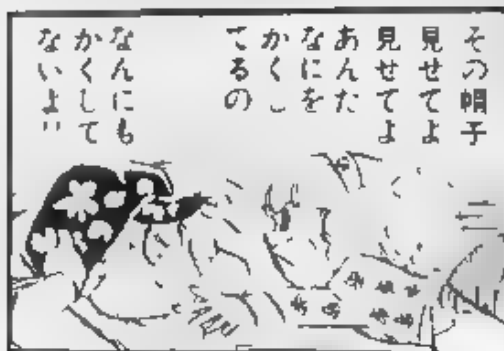 その帽子
見せてよ
見せてよ
あんた
なにを
かくし
てるの
なんにも
かくして
ないよ!!